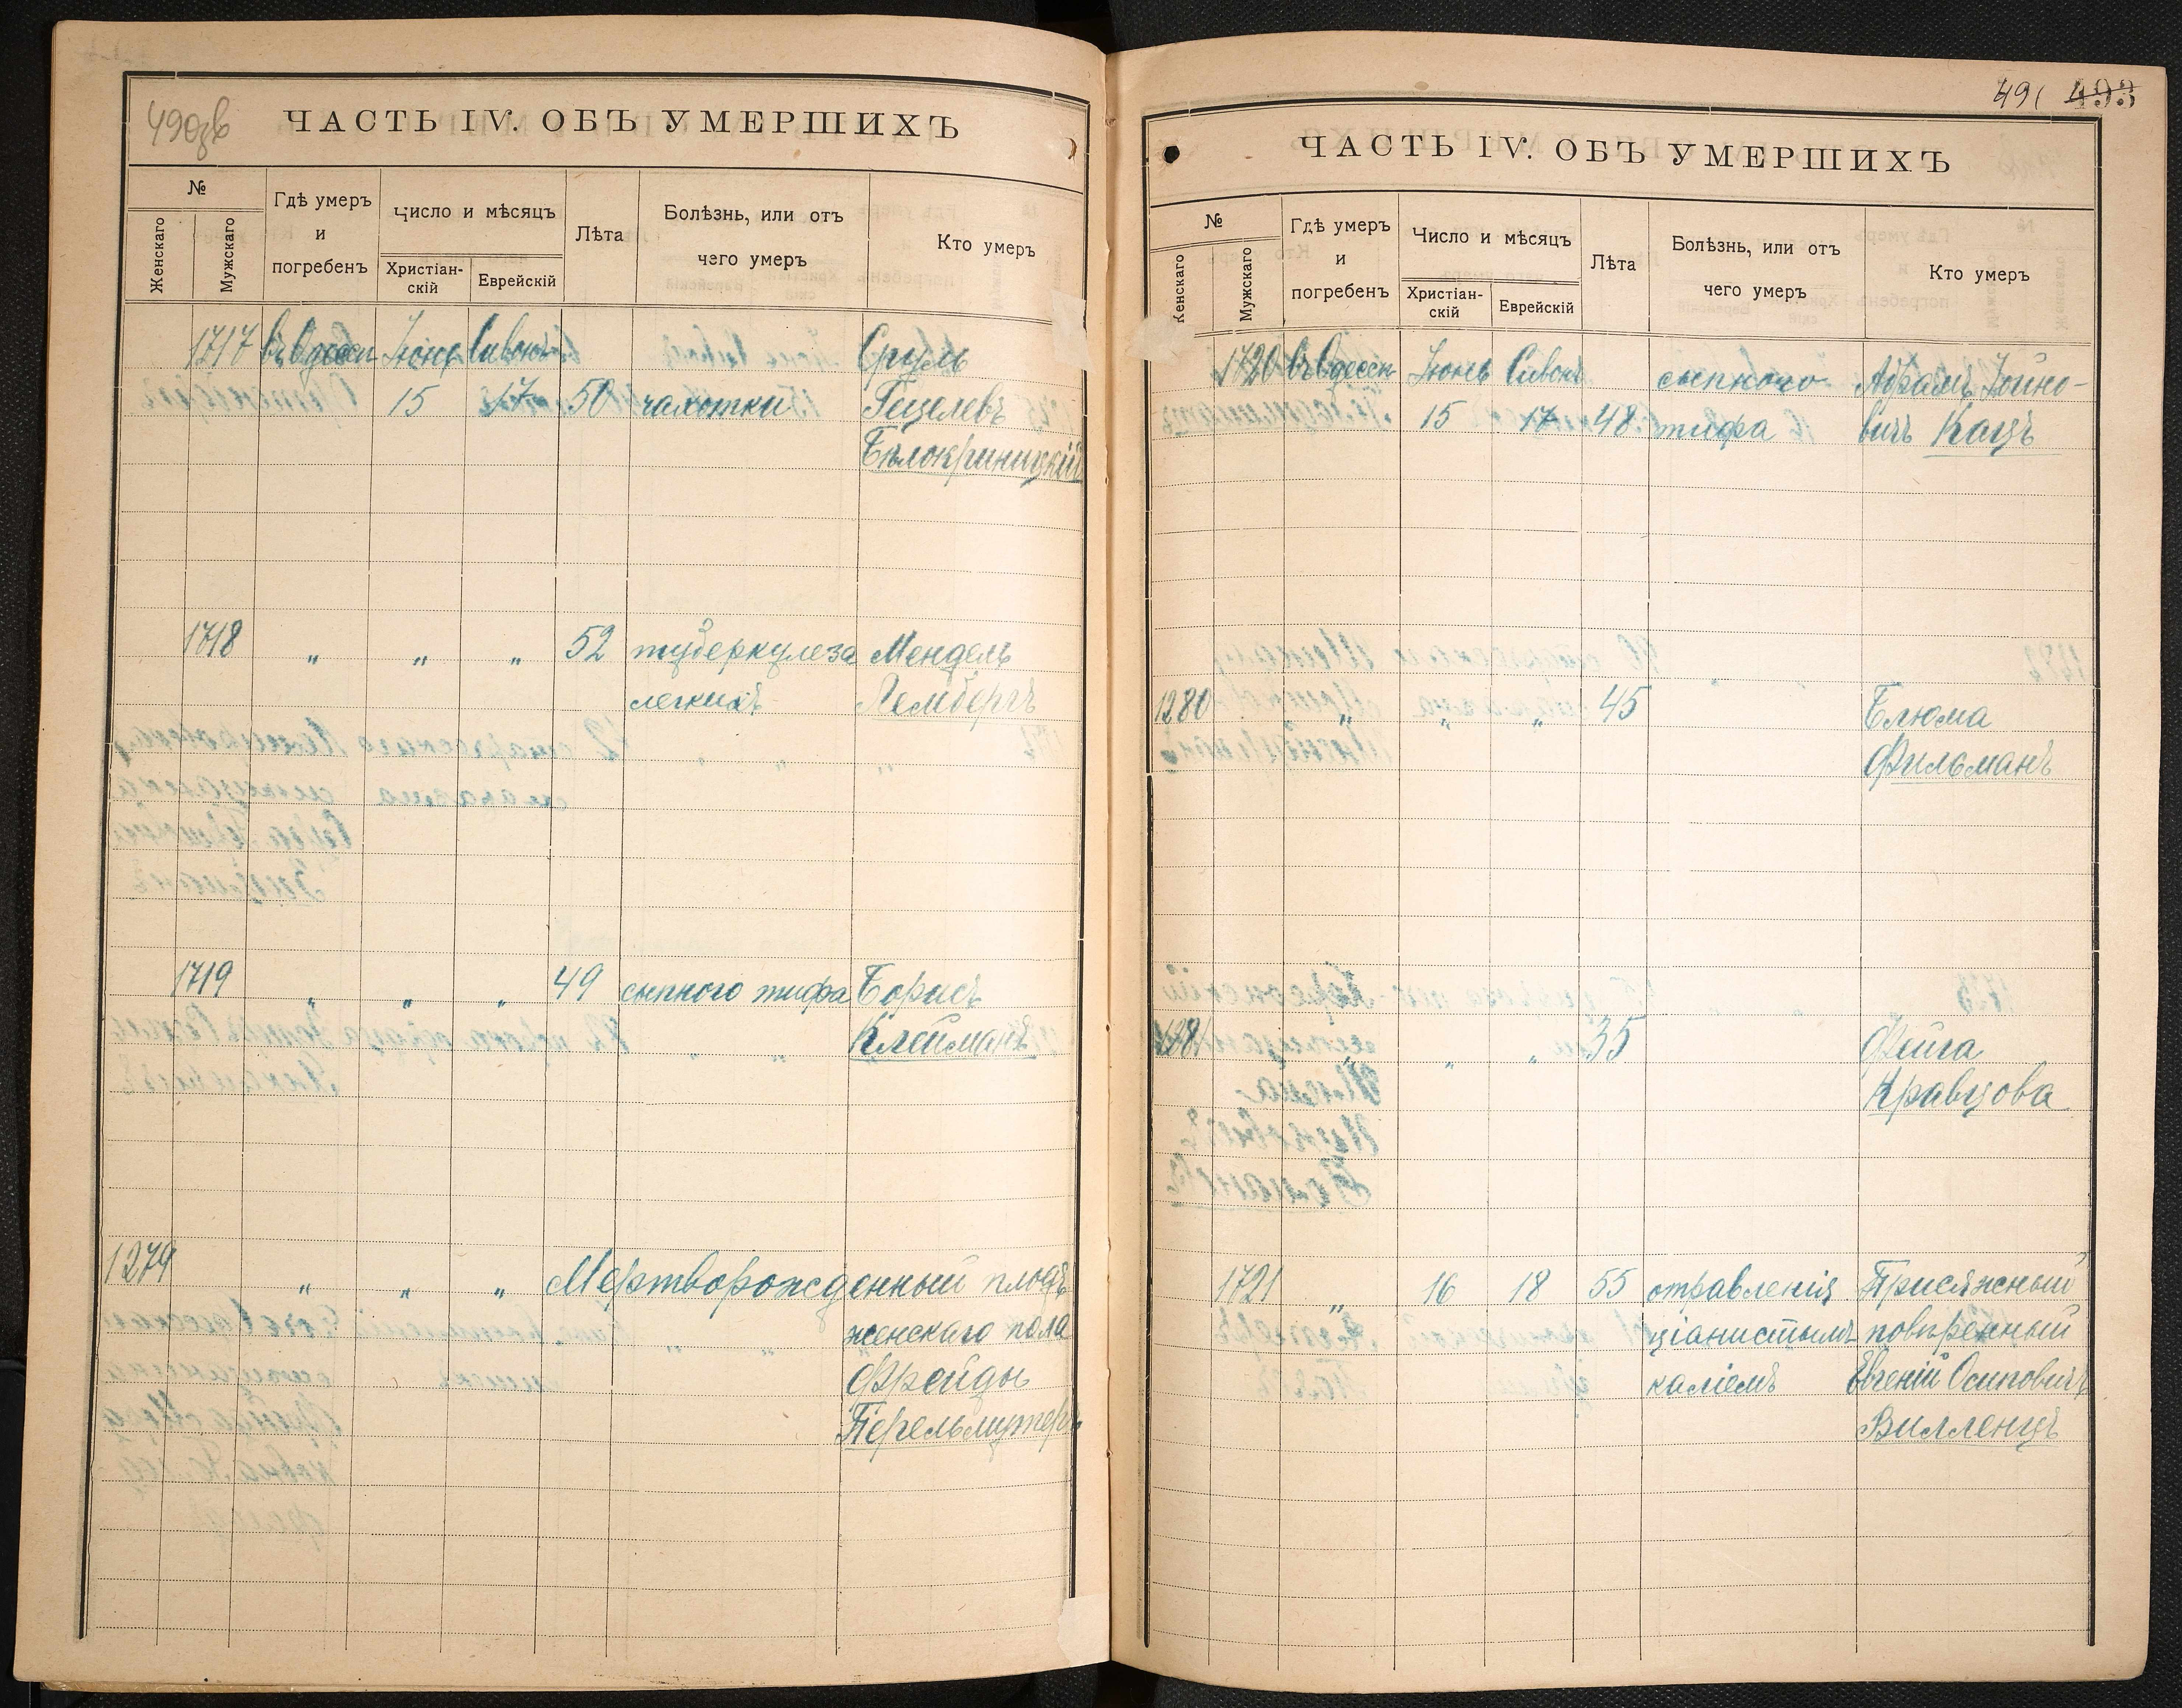 490зв
ЧАСТЬ IV. ОБЪ УМЕРШИХЪ
№
Женскаго
Мужскаго
Гдѣ умеръ
и
погребенъ
Число и мѣсяцъ
Христіан-
скій
Еврейскій
Лѣта
Болѣзнь, или отъ
чего умеръ
Кто умеръ
1717 въ Одессѣ Іюнь Сивонъ Сруль
15 17 50 чахотки Гецелевъ
Бѣлокриницкій
1718 „ „ „ 52 туберкулеза Мендель
легкихъ Лембергъ
1719 „ „ „ 49 сыпного тифа Борисъ
Клейманъ
1279 „ „ „ Мертворожденный плодъ
женскаго пола
Фрейды
Перельмутеръ
491 493
ЧАСТЬ IV. ОБЪ УМЕРШИХЪ
№
Женскаго
Мужскаго
Гдѣ умеръ
и
погребенъ
Число и мѣсяцъ
Христіан-
скій
Еврейскій
Лѣта
Болѣзнь, или отъ
чего умеръ
Кто умеръ
1720 въ Одессѣ Іюнь Сивонъ сыпного Абрамъ Іойно-
15 17 48 тифа вичъ Кацъ
1280 „ „ „ 45 Блюма
Фильманъ
1281 „ „ „ 35 Фейга
Кравцова
1721 „ 16 18 55 отравленія Присяжный
ціанистымъ повѣренный
каліемъ Евгеній Осиповичъ
Вилленцъ